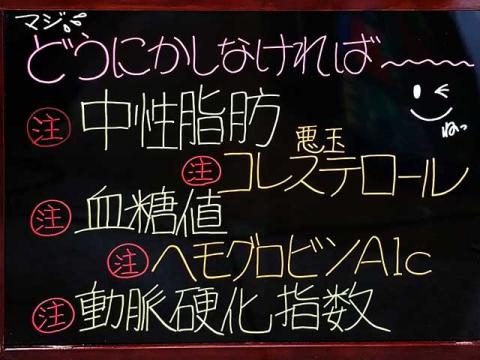 マジ
どうにかしなければ〜〜〜
注 中性脂肪
悪玉
注 コレステロール
注 血糖値
注 ヘモグロビンA1c
注 動脈硬化指数
ねっ